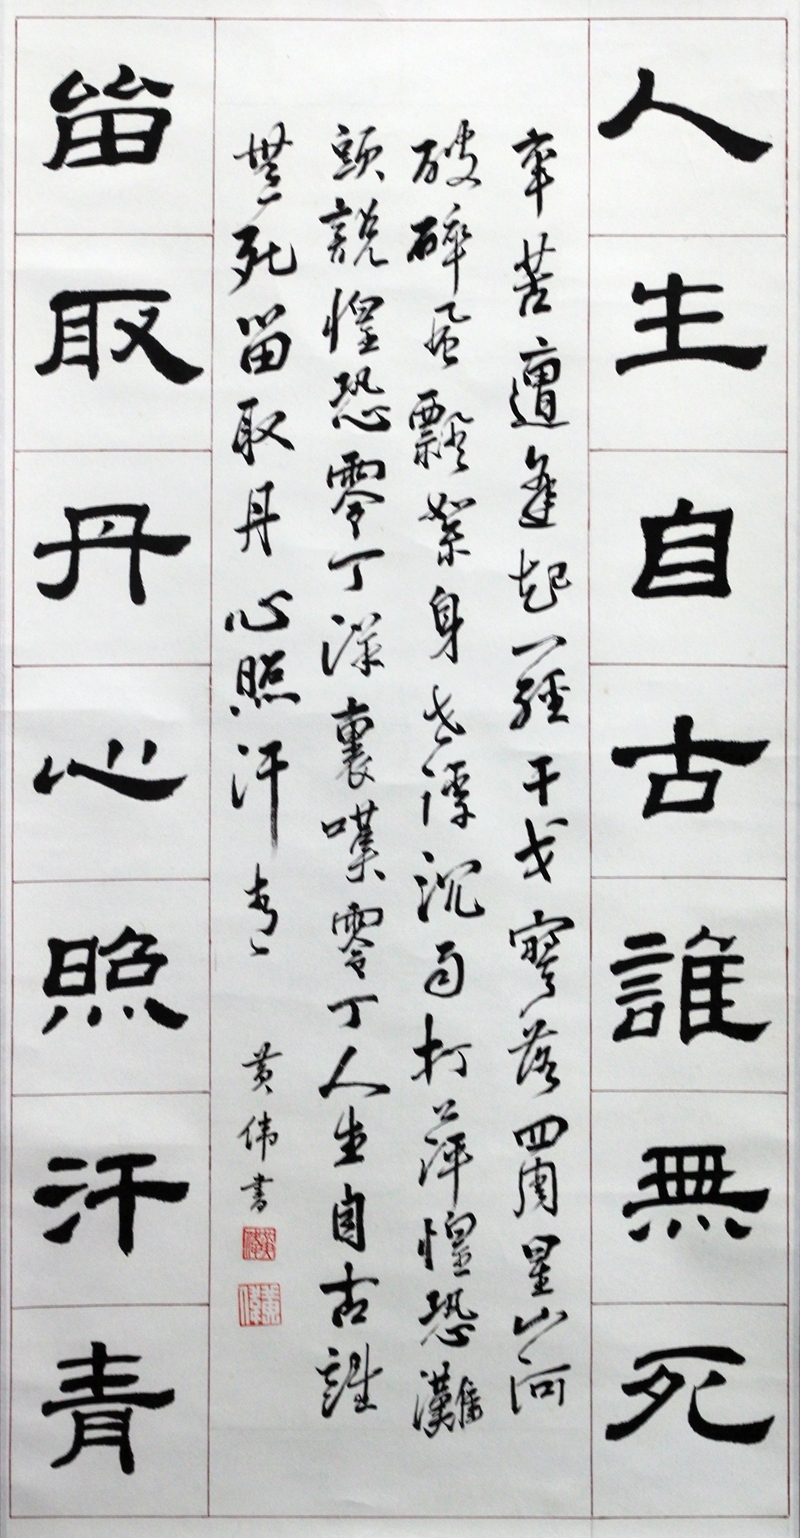 人生自古誰無死
辛苦遭逢起一經干戈寥落四周星山河
破碎風飄絮身世浮沉雨打萍惶恐灘
頭說惶恐零丁洋裏嘆零丁人生自古誰
無死留取丹心照汗青
黄伟書
留取丹心照汗青